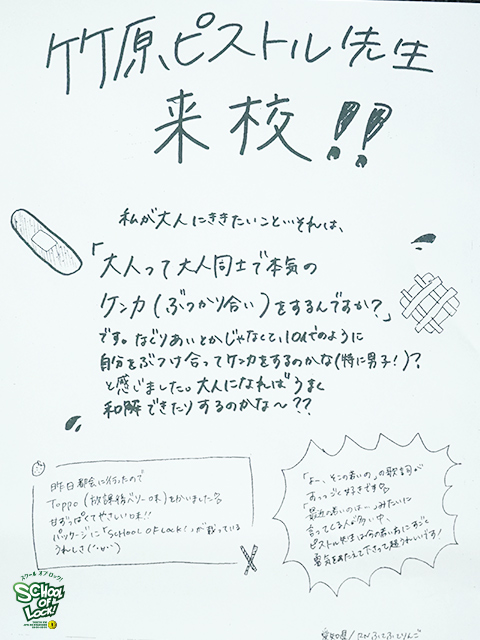 竹原ピストル先生
来校!!
私が大人にききたいこと…それは、
「大人って大人同士で本気の
ケンカ(ぶつかり合い)をするんですか?」
です。なぐりあいとかじゃなくて、10代のように
自分をぶつけ合ってケンカをするのかな(特に男子!)?
と感じました。大人になればうまく
和解できたりするのかな〜??
昨日都会に行ったので
Toppo(放課後ベリー味)をかいました
甘ずっぱくてやさしい味!!
パッケージに「SCHOOL OF LOCK!」が載っている
うれしさ(´・ω・`)
「よー、そこの若いの」の歌詞が
すっっごく好きです
「最近の若いのは…」みたいに
言ってくる人が多い中、
ピストル先生は今の若いあにすごく
勇気をあたえて下さって超うれしいです!
スクール オブ ロック!
SCHOOL
OF
LOCK!
愛知県/RN